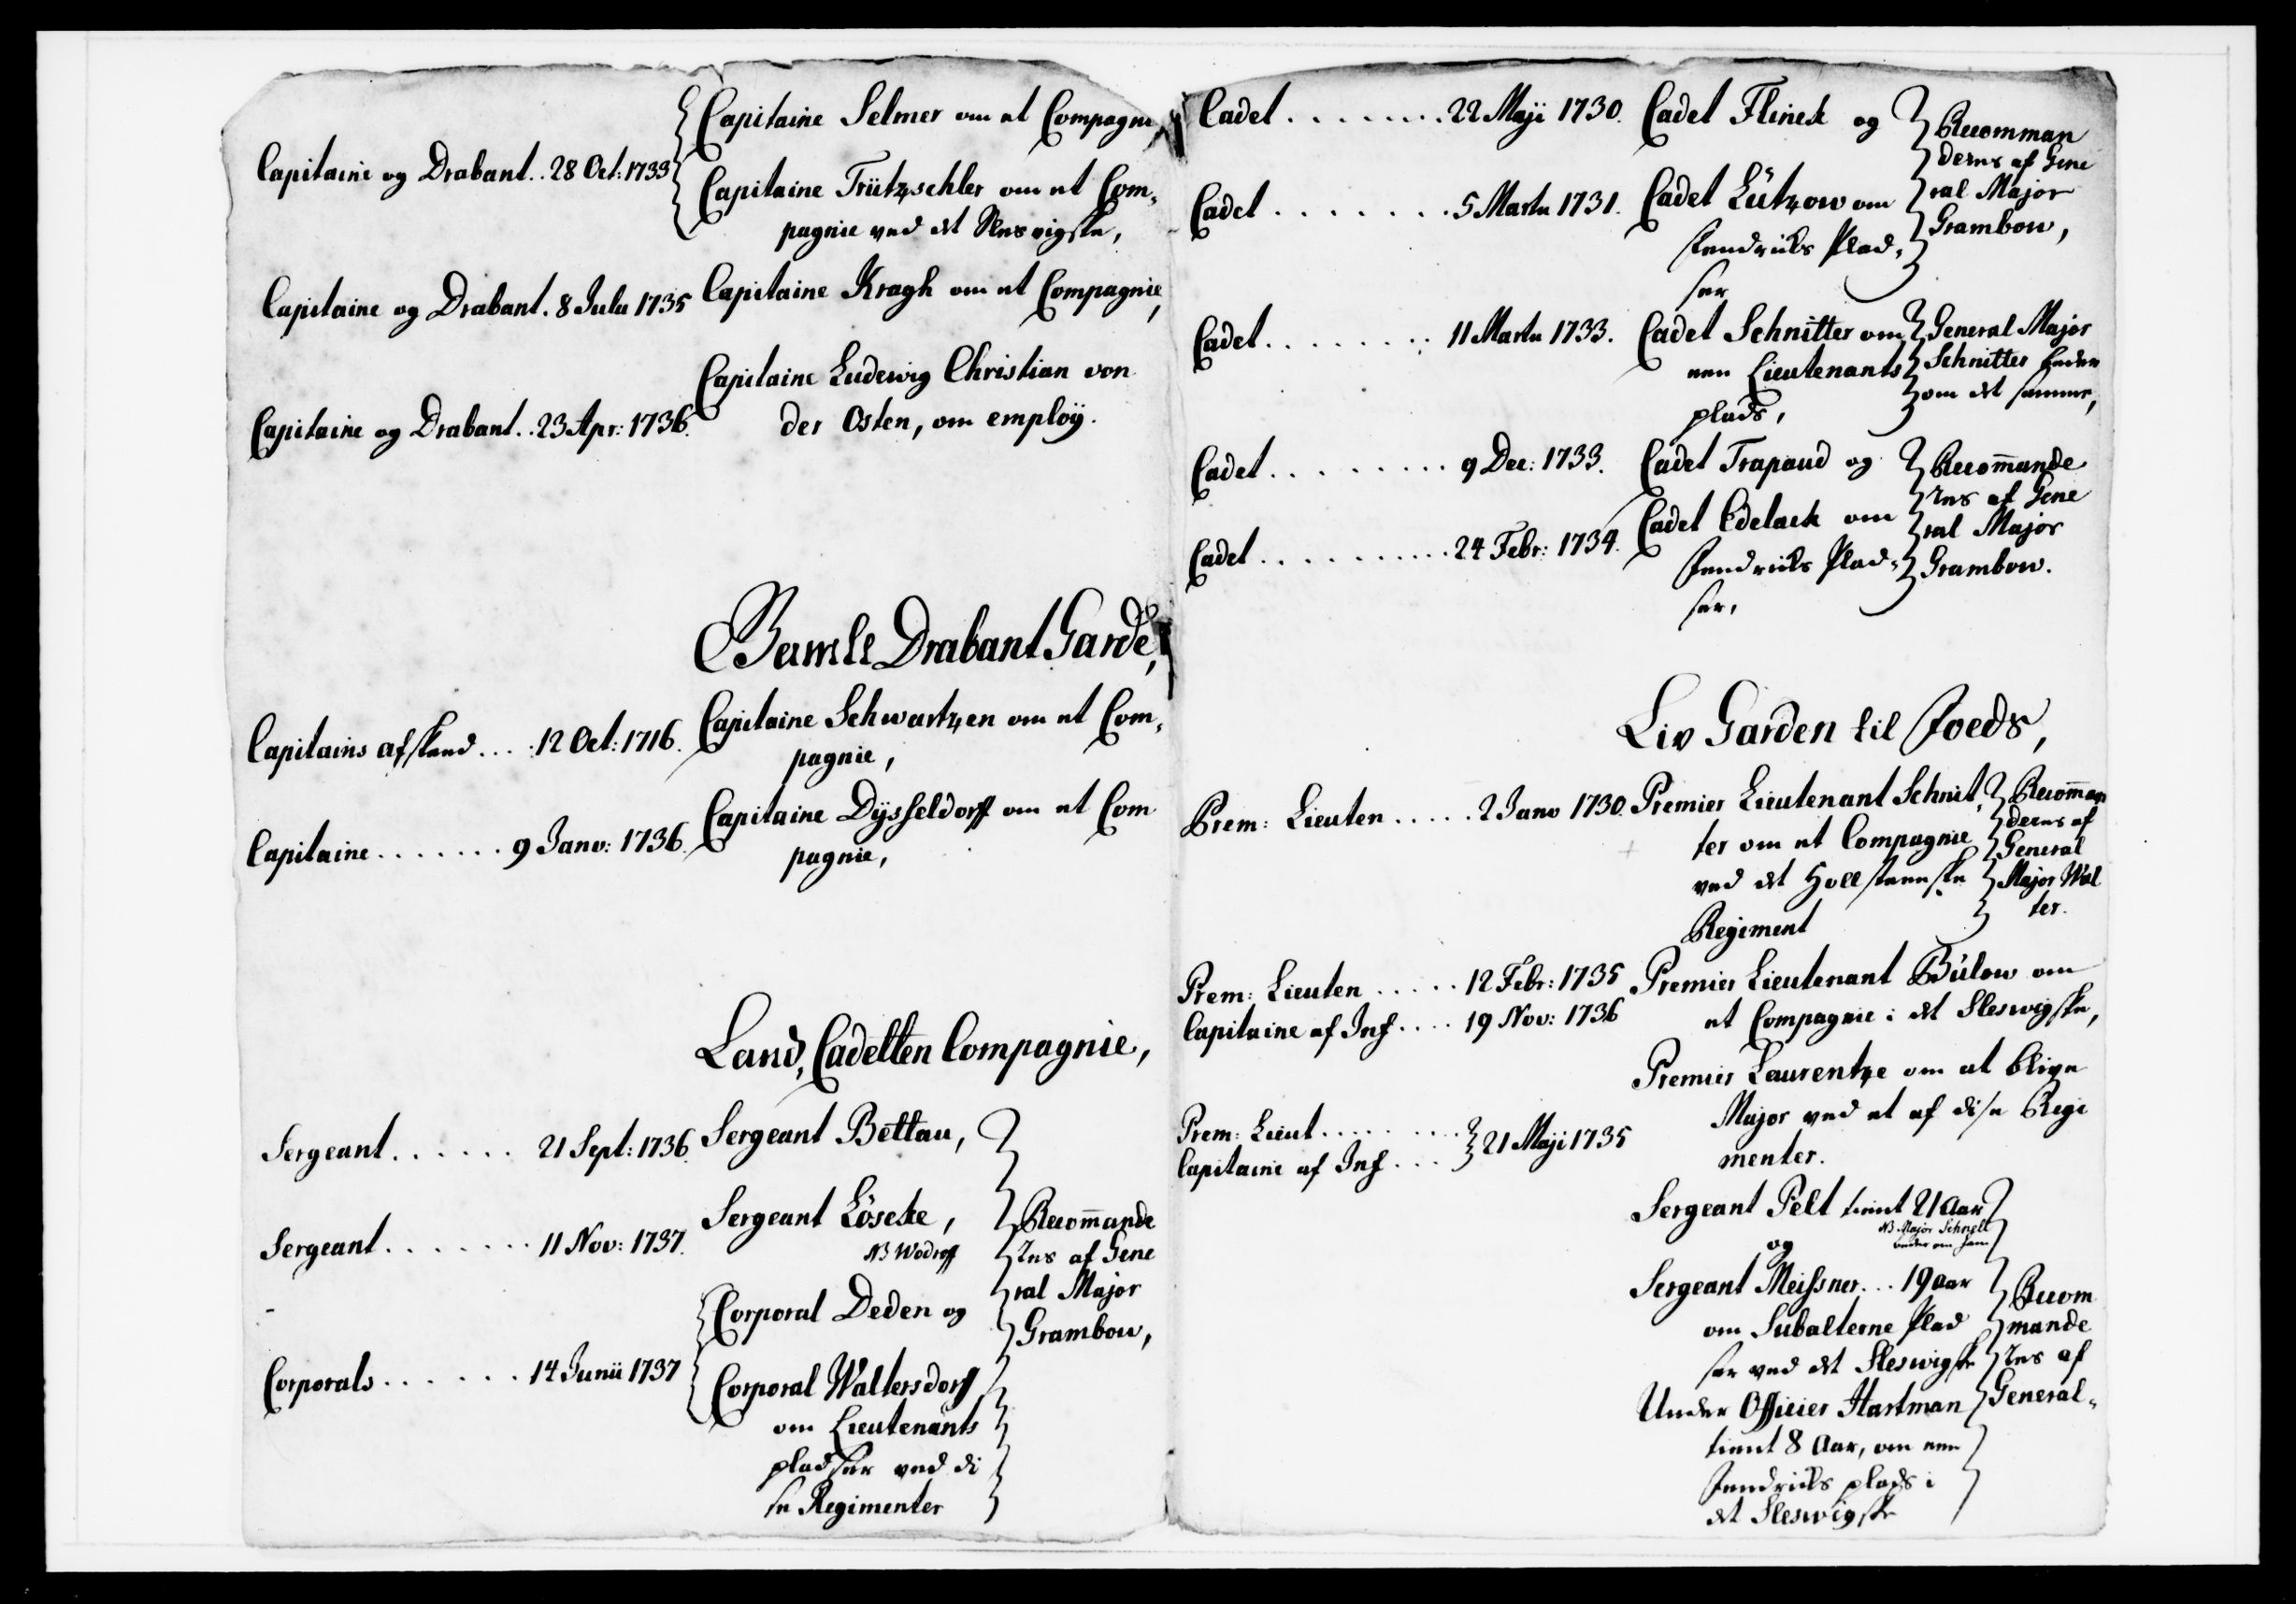 Capitaine Selmer om et Compagnie
Capitaine og Drabant . . 28 Oct: 1733
Capitaine Trützschler om et Com,
pagnie ved det Slesvigske,
Capitaine og Drabant . 8 Julii 1735 Capitaine Kragh om et Compagnie,
Capitaine Ludewig Christian von
Capitaine og Drabant . . 23 Apr: 1736.
der Osten, om employ.
Gamle Drabant Garde,
Capitains afskeed . . . : 12 Oct: 1716. Capitaine Schwartzen om et Com,
pagnie,
Capitaine . . . . . . . 9 Janv: 1736. Capitaine Dÿsseldorff om et Com
pagnie,
Land, Cadetten Compagnie,
Sergeant . . . . . . 21 Sept: 1736. Sergeant Bettau,
Sergeant . . . . . . . . 11 Nov: 1737. Sergeant Löscke,
NB Wodroff
Corporal Deden og
Corporals . . . . . . . 14 Junii 1737
Corporal Waltersdorff
om Lieutenants
pladser ved di
se Regimenter
Recom̅ande
res af Gene
ral Major
Grambow,
Cadet . . . . . . . . 22 Maji 1730. Cadet Flinck og
Cadet . . . . . . . . 5 Martii 1731. Cadet Lützow om
Fendricks Plad,
ser
Recomman
deres af Gene
ral Major
Grambow,
Cadet . . . . . . . . 11 Martii 1733. Cadet Schnitter om
een Lieutenants
plads,
General Major
Schnitter beder
om det samme,
Cadet . . . . . . . . . 9 Dec: 1733. Cadet Trapaud og
Cadet . . . . . . . . . . 24 Febr: 1734. Cadet Edelack om
Fendricks Plad,
ser,
Recom̅ande
res af Gene
ral Major
Grambow.
Liv Garden til Foeds,
Prem: Lieuten . . . . . 2 Janv 1730. Premier Lieutenant Schnit,
ter om et Compagnie
ved det Hollsteenske
Regiment
Recom̅an
deres af
General
Major Wal
ter.
Prem: Lieuten . . . . . 12 Febr: 1735 Premier Lieutenant Bülow om
Capitaine af Inf . . . . 19 Nov: 1736 et Compagnie i det Sleswigske,
Premier Laurentze om at blive
Major ved et af dise Regi
menter.
Prem: Lieut . . . . . . . . .
Capitaine af Inf . . . 21 Maji 1735
Sergeant Pelt tient 21 Aar
NB Major Schnell
beder om ham
og
Sergeant Meissner . . . 19 aar
om Subalterne Plad
ser ved det Sleswigske
Under Officier Hartman
tient 8 Aar, om een
Fendricks plads i
det Sleswigske
Recom
mande
res af
General,